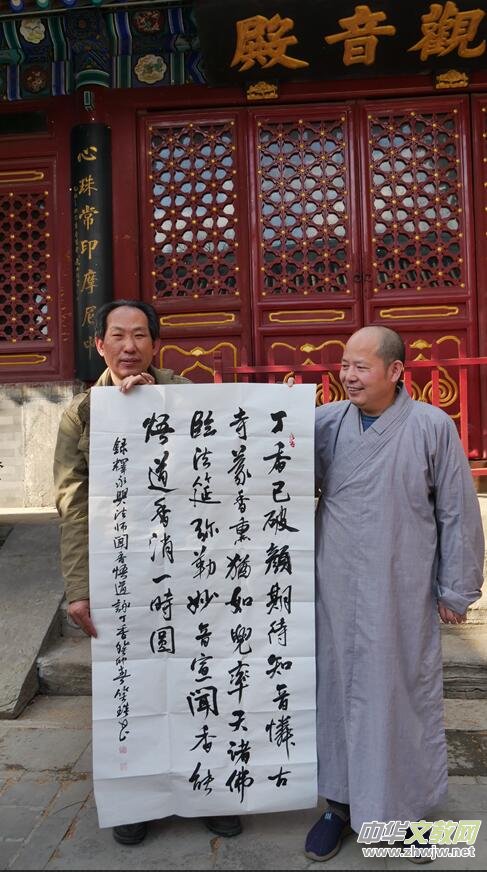 觀音殿
心珠常印摩尼
丁香已破顏期待知音憐古
寺香熏猶如兜率天諸佛
臨法筵弥勒妙音宣聞香能
悟道香消一時圓
錄釋永興法師聞香悟道詠丁香
中华文教网
www.zhwjw.net